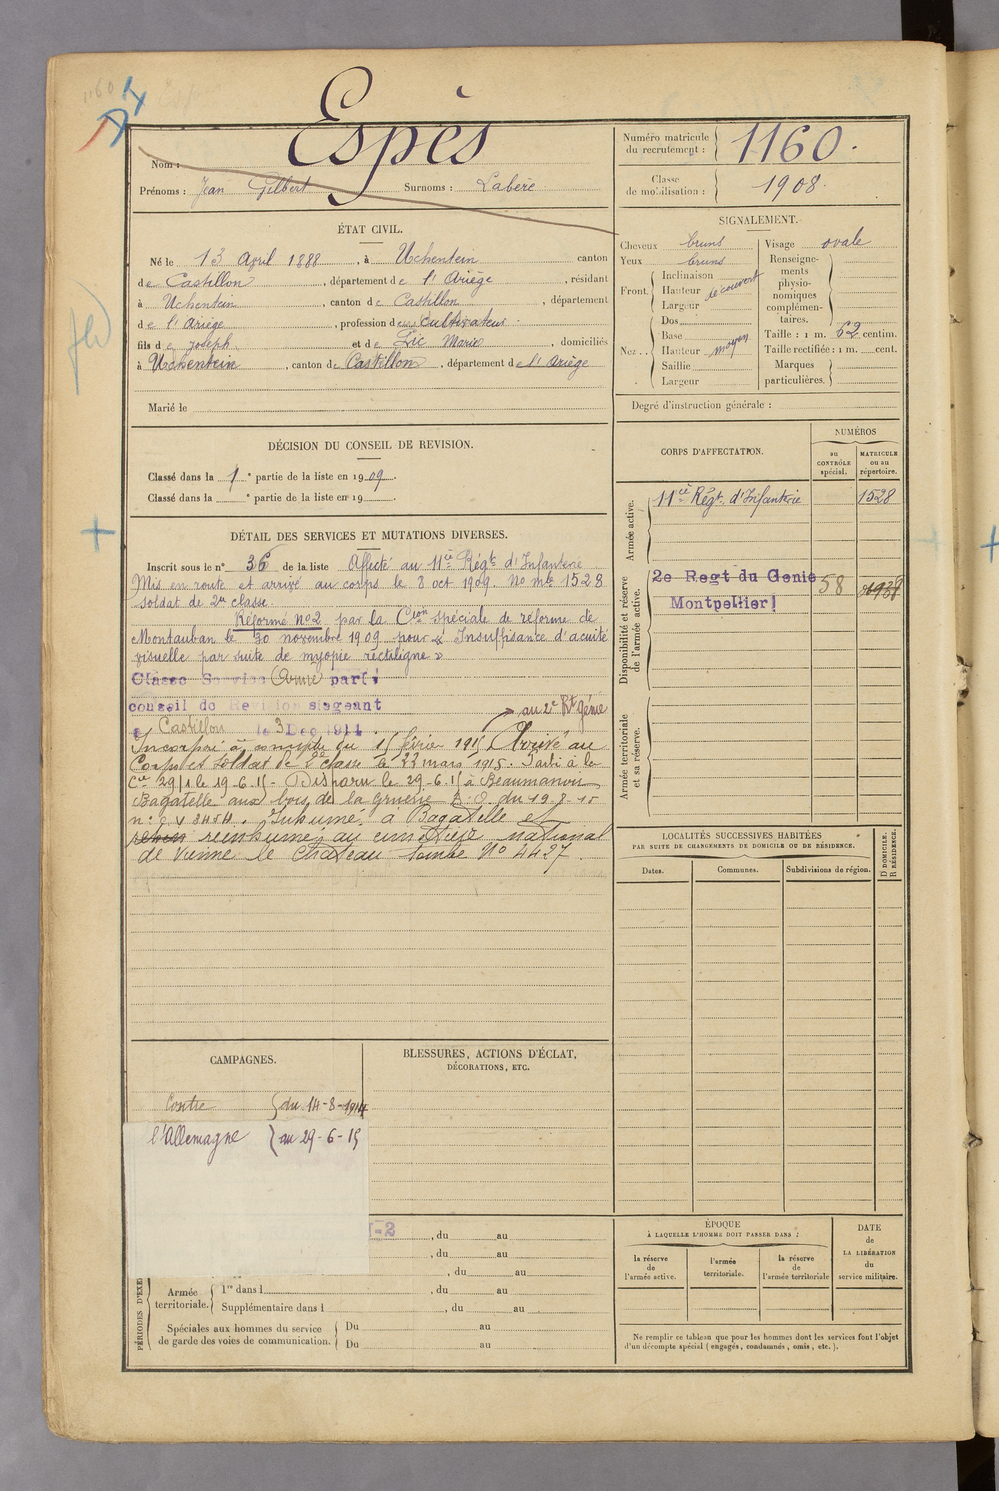 Espès
Nom :
Prénoms : Jean Gilbert Surnoms : Labère
Numéro matricule du recrutement : 1160.
Classe de mobilisation : 1908.
ÉTAT CIVIL.
Né le 13 April 1888, à Uchentein canton
de Castillon, département de l'Ariège, résidant
à Uchentein, canton de Castillon, département
de l'Ariège, profession de Cultivateur.
fils de Joseph et de Marie, domiciliés
à Uchentein, canton de Castillon, département de l'Ariège
Marié le
SIGNALEMENT.
Cheveux bruns
Yeux bruns
Front. Inclinaison
Hauteur découvert
Largeur
Nez .. Dos
Base
Hauteur moyen
Saillie
Largeur
Visage ovale
Renseigne-
ments
physio-
nomiques
complémen-
taires.
Taille : 1 m. 62 centim.
Taille rectifiée : 1 m. cent.
Marques
particulières.
Degré d'instruction générale :
DÉCISION DU CONSEIL DE REVISION.
Classé dans la 1e partie de la liste en 1909.
Classé dans la e partie de la liste en 19
DÉTAIL DES SERVICES ET MUTATIONS DIVERSES.
Inscrit sous le n° 36 de la liste Affecté au 11e Régt d'Infanterie
Mis en route et arrivé au corps le 8 oct 1909. No mle 1528
soldat de 2e classe.
Réformé No2 par la Cion spéciale de réforme de
Montauban le 30 novembre 1909 pour « Insuffisance d'acuité
visuelle par suite de myopie rectiligne »
Classé Service Armé par le
conseil de Revision siegeant
à Castillon le 3 Dec 1914
→ au 2e Rt génie
Incorporé à compter du 15 février 1915 Arrivé au
Corps et soldat de 2e classe le 22 mars 1915. Passé à la
Cie 29/1 le 19-6-15 - Disparu le 29-6-15 à Beaumanoir
Bagatelle aux bois de la Gruerie
Inhumé à Bagatelle et
réinhumé au cimetière national
de Vienne le Château tombe No 4427.
CORPS D'AFFECTATION.
NUMÉROS
au
CONTRÔLE
spécial.
MATRICULE
ou au
répertoire.
Armée active.
11e Régt. d'Infanterie 1528
Disponibilité et réserve
de l'armée active.
2e Regt du Genie 58
Montpellier
Armée territoriale
et sa réserve.
LOCALITÉS SUCCESSIVES HABITÉES
PAR SUITE DE CHANGEMENTS DE DOMICILE OU DE RÉSIDENCE.
D DOMICILE.
R RÉSIDENCE.
Dates. Communes. Subdivisions de région.
CAMPAGNES.
Contre du 14-8-1914
l'Allemagne au 29-6-15
BLESSURES, ACTIONS D'ÉCLAT,
DÉCORATIONS, ETC.
, du au
, du au
, du au
Armée
territoriale.
1re dans l , du au
Supplémentaire dans l , du au
Spéciales aux hommes du service
de garde des voies de communication.
Du au
Du au
ÉPOQUE
À LAQUELLE L'HOMME DOIT PASSER DANS :
la réserve
de
l'armée active.
l'armée
territoriale.
la réserve
de
l'armée territoriale
DATE
de
LA LIBÉRATION
du
service militaire.
Ne remplir ce tableau que pour les hommes dont les services font l'objet
d'un décompte spécial (engagés, condamnés, omis, etc.).